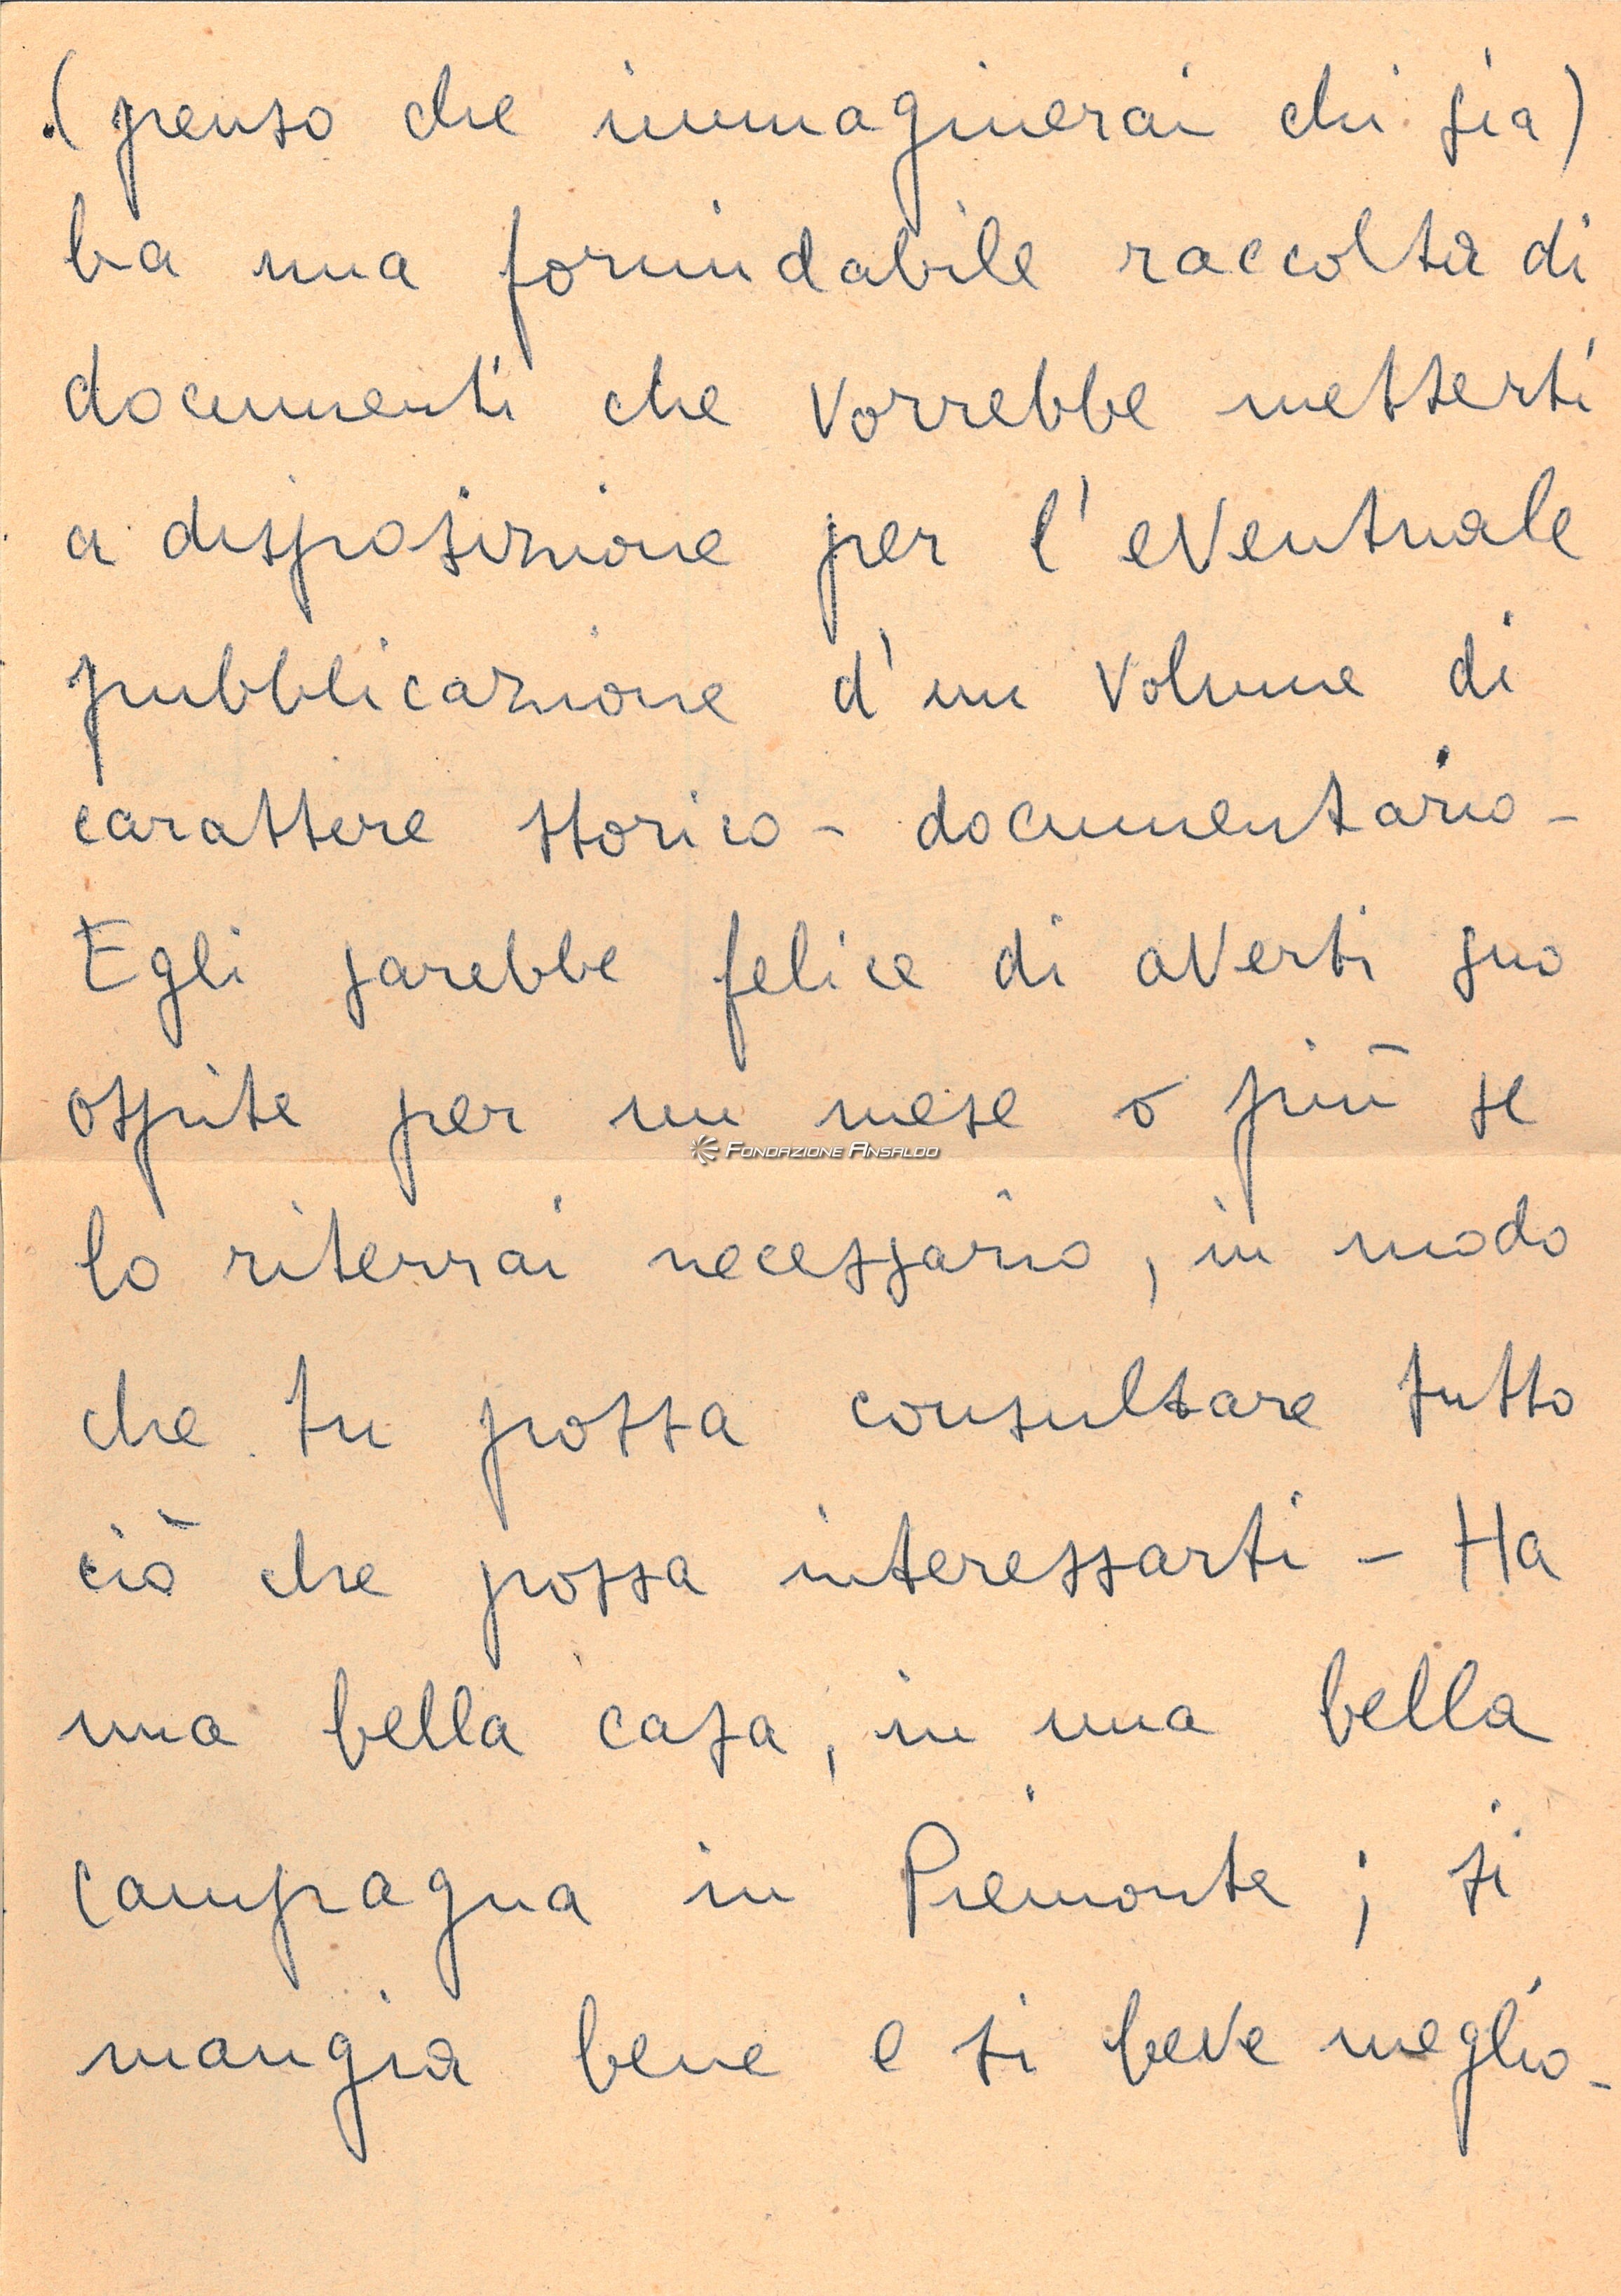 (penso che immaginerai chi sia)
ha una formidabile raccolta di
documenti che vorrebbe metterti
a disposizione per l'eventuale
pubblicazione d'un volume di
carattere storico - documentario -
Egli sarebbe felice di averti suo
ospite per un mese o più se
FONDAZIONE ANSALDO
lo riterrai necessario, in modo
che tu possa consultare tutto
ciò che possa interessarti - Ha
una bella casa, in una bella
campagna in Piemonte; si
mangia bene e si beve meglio -